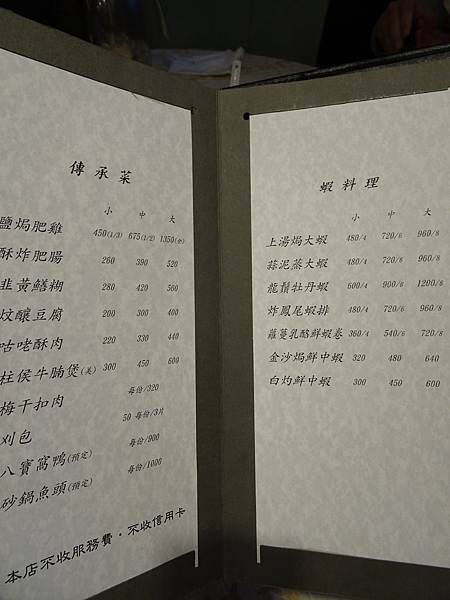 傳承菜
小 中 大
鹽焗肥雞 450(1/3) 675(1/2) 1350(全)
酥炸肥腸 260 390 520
韭黃鱔糊 280 420 560
炆釀豆腐 200 300 400
咕咾酥肉 220 330 440
柱侯牛腩煲(美) 300 450 600
梅干扣肉 每份/320
刈包 50 每份/3片
八寶窩鴨(預定) 每份/900
砂鍋魚頭(預定) 每份/1000
本店不收服務費‧不收信用卡
蝦料理
小 中 大
上湯焗大蝦 480/4 720/6 960/8
蒜泥蒸大蝦 480/4 720/6 960/8
龍鬚牡丹蝦 600/4 900/6 1200/8
炸鳳尾蝦排 480/4 720/6 960/8
蘿蔓乳酪鮮蝦卷 360/4 540/6 720/8
金沙焗鮮中蝦 320 480 640
白灼鮮中蝦 300 450 600